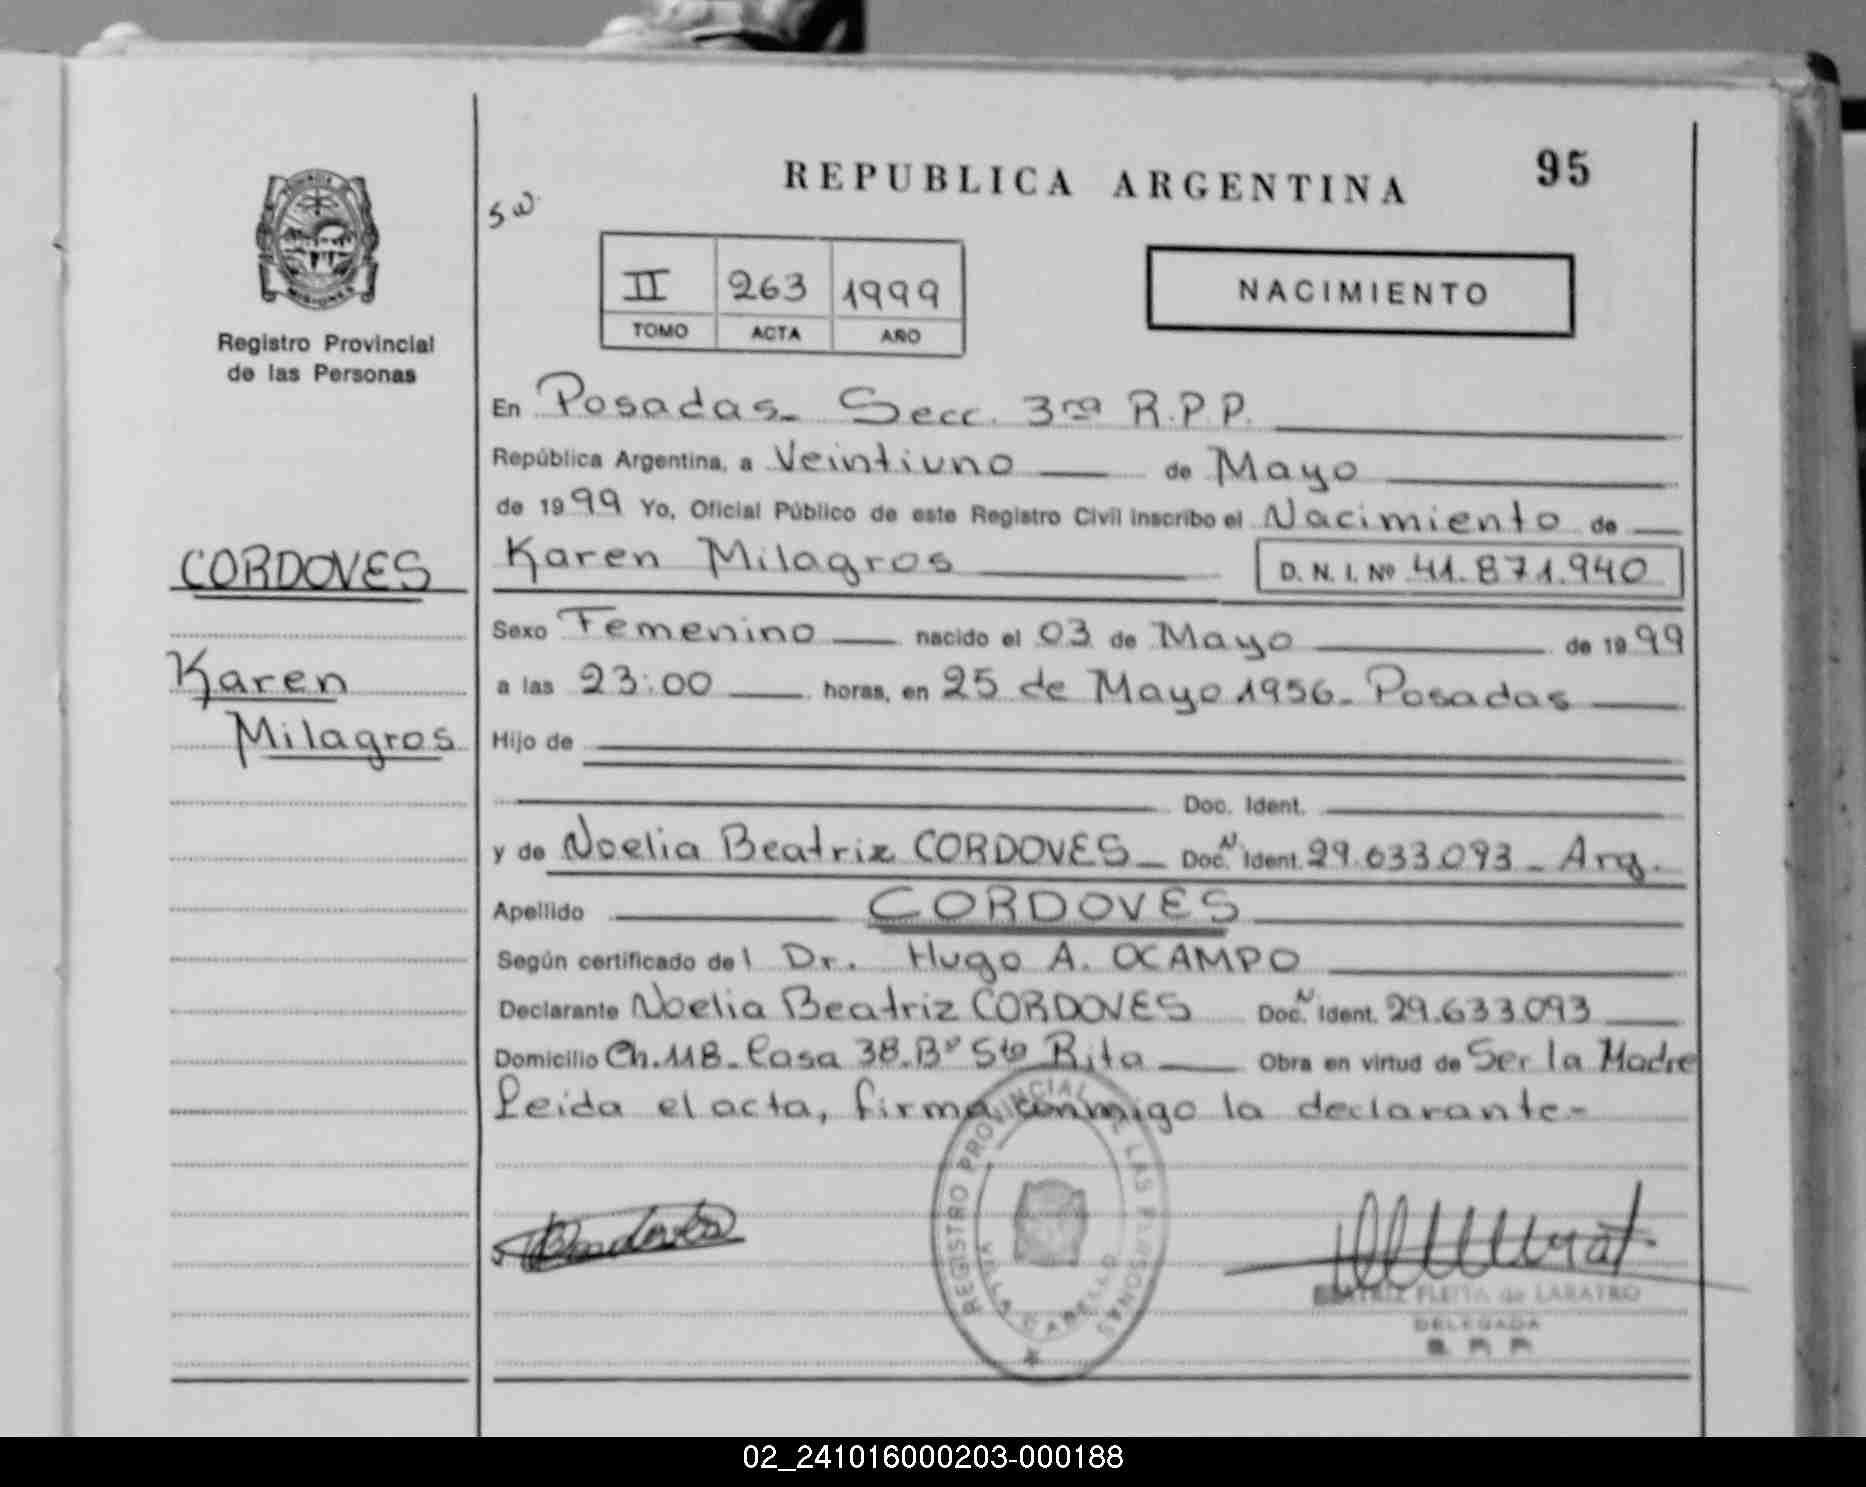 REPUBLICA ARGENTINA
95
PROVINCIA DE MISIONES
Registro Provincial
de las Personas
II 263 1999
TOMO ACTA AÑO
NACIMIENTO
En Posadas_ Secc. 3ra R.P.P.
República Argentina, a Veintiuno de Mayo
de 1999 Yo, Oficial Público de este Registro Civil inscribo el Nacimiento de
CORDOVES
Karen Milagros
Karen Milagros D. N. I. Nº 41.871.940
Sexo Femenino nacido el 03 de Mayo de 1999
a las 23:00 horas, en 25 de Mayo 1956_ Posadas
Hijo de
Doc. Ident.
y de Noelia Beatriz CORDOVES_ Doc. N Ident. 29.633.093_ Arg.
Apellido CORDOVES
Según certificado del Dr. Hugo A. OCAMPO
Declarante Noelia Beatriz CORDOVES Doc. N Ident. 29.633.093
Domicilio Ch.118_ Casa 38.Bº Sta Rita Obra en virtud de Ser la Madre
Leida el acta, firma conmigo la declarante-
REGISTRO PROVINCIAL DE LAS PERSONAS
VILLA CABELLO
BEATRIZ FLEITA de LABATRO
DELEGADA
02_241016000203-000188